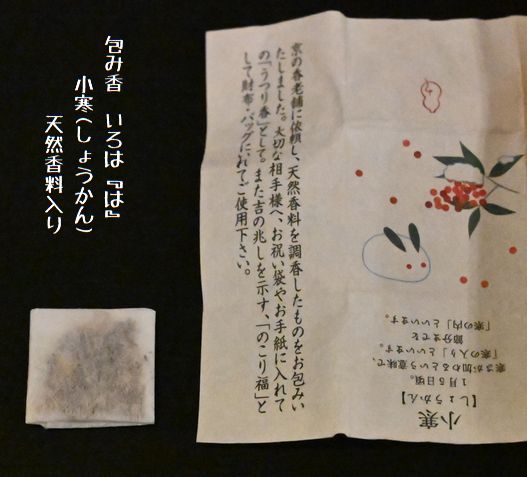 包み香 いろは『は』
小寒(しょうかん)
天然香料入り
京の香老舗に依頼し、天然香料を調香したものをお包みい
たしました。大切な相手様へ、お祝い袋やお手紙に入れて
の「うつり香」として。また吉の兆しを示す、「のこり福」と
して財布・バッグに入れてご使用下さい。
小寒
【しょうかん】
1月5日頃。
寒さが加わるという意味で、
「寒の入り」といいます。
節分までを
「寒の内」といいます。